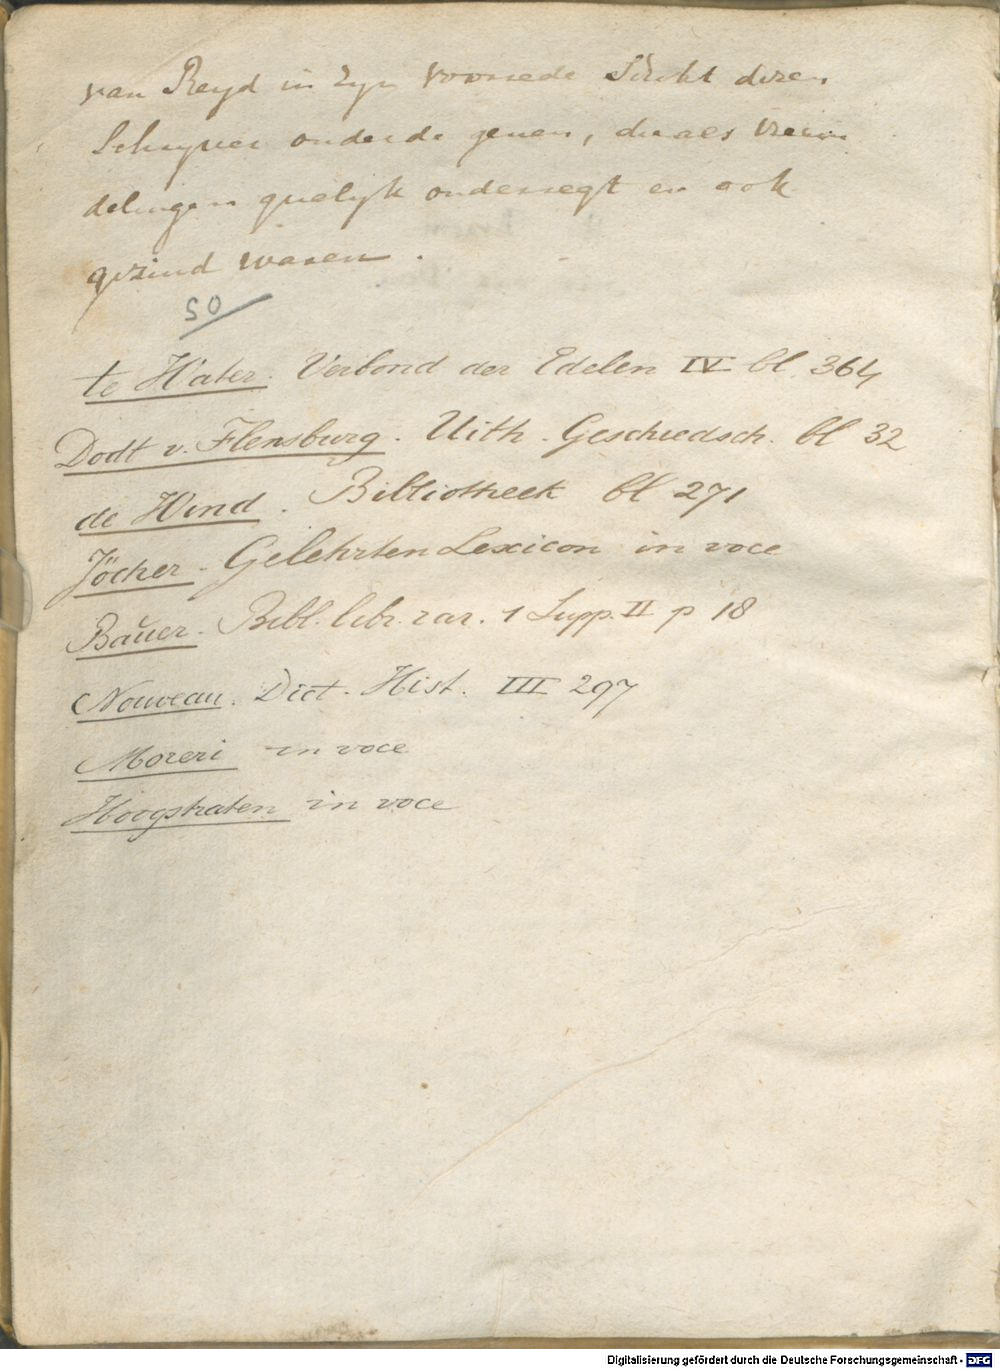 van Reyd in zyn voorrede Stelt dezen
Schryver onder de genen, die als vreem
delingen qualyk onderregt en ook
gezind waren.
50
te Water. Verbond der Edelen IV bl. 364
Dodt v. Flensburg. Utth. Geschiedsch. bl 32
de Wind. Bibliotheek bl 271
Jöcher. Gelehrten Lexicon in voce
Bauer. Bibl. libr. rar. 1 Supp. II p 18
Nouveau. Dict. Hist. III 297
Moreri in voce
Hoogstraten in voce
Digitalisierung gefördert durch die Deutsche Forschungsgemeinschaft - DFG